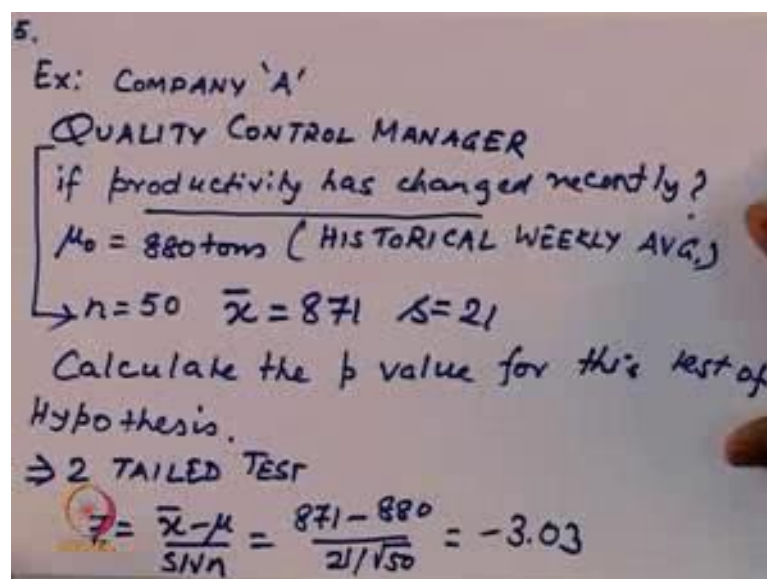 5.
Ex: COMPANY 'A'
QUALITY CONTROL MANAGER
if productivity has changed recently?
μ₀ = 880 tons (HISTORICAL WEEKLY AVG.)
→ n=50 x̄ = 871 s=21
Calculate the p value for this test of
Hypothesis.
⇒ 2 TAILED TEST
Z = x̄-μ / S/√n = 871-880 / 21/√50 = -3.03